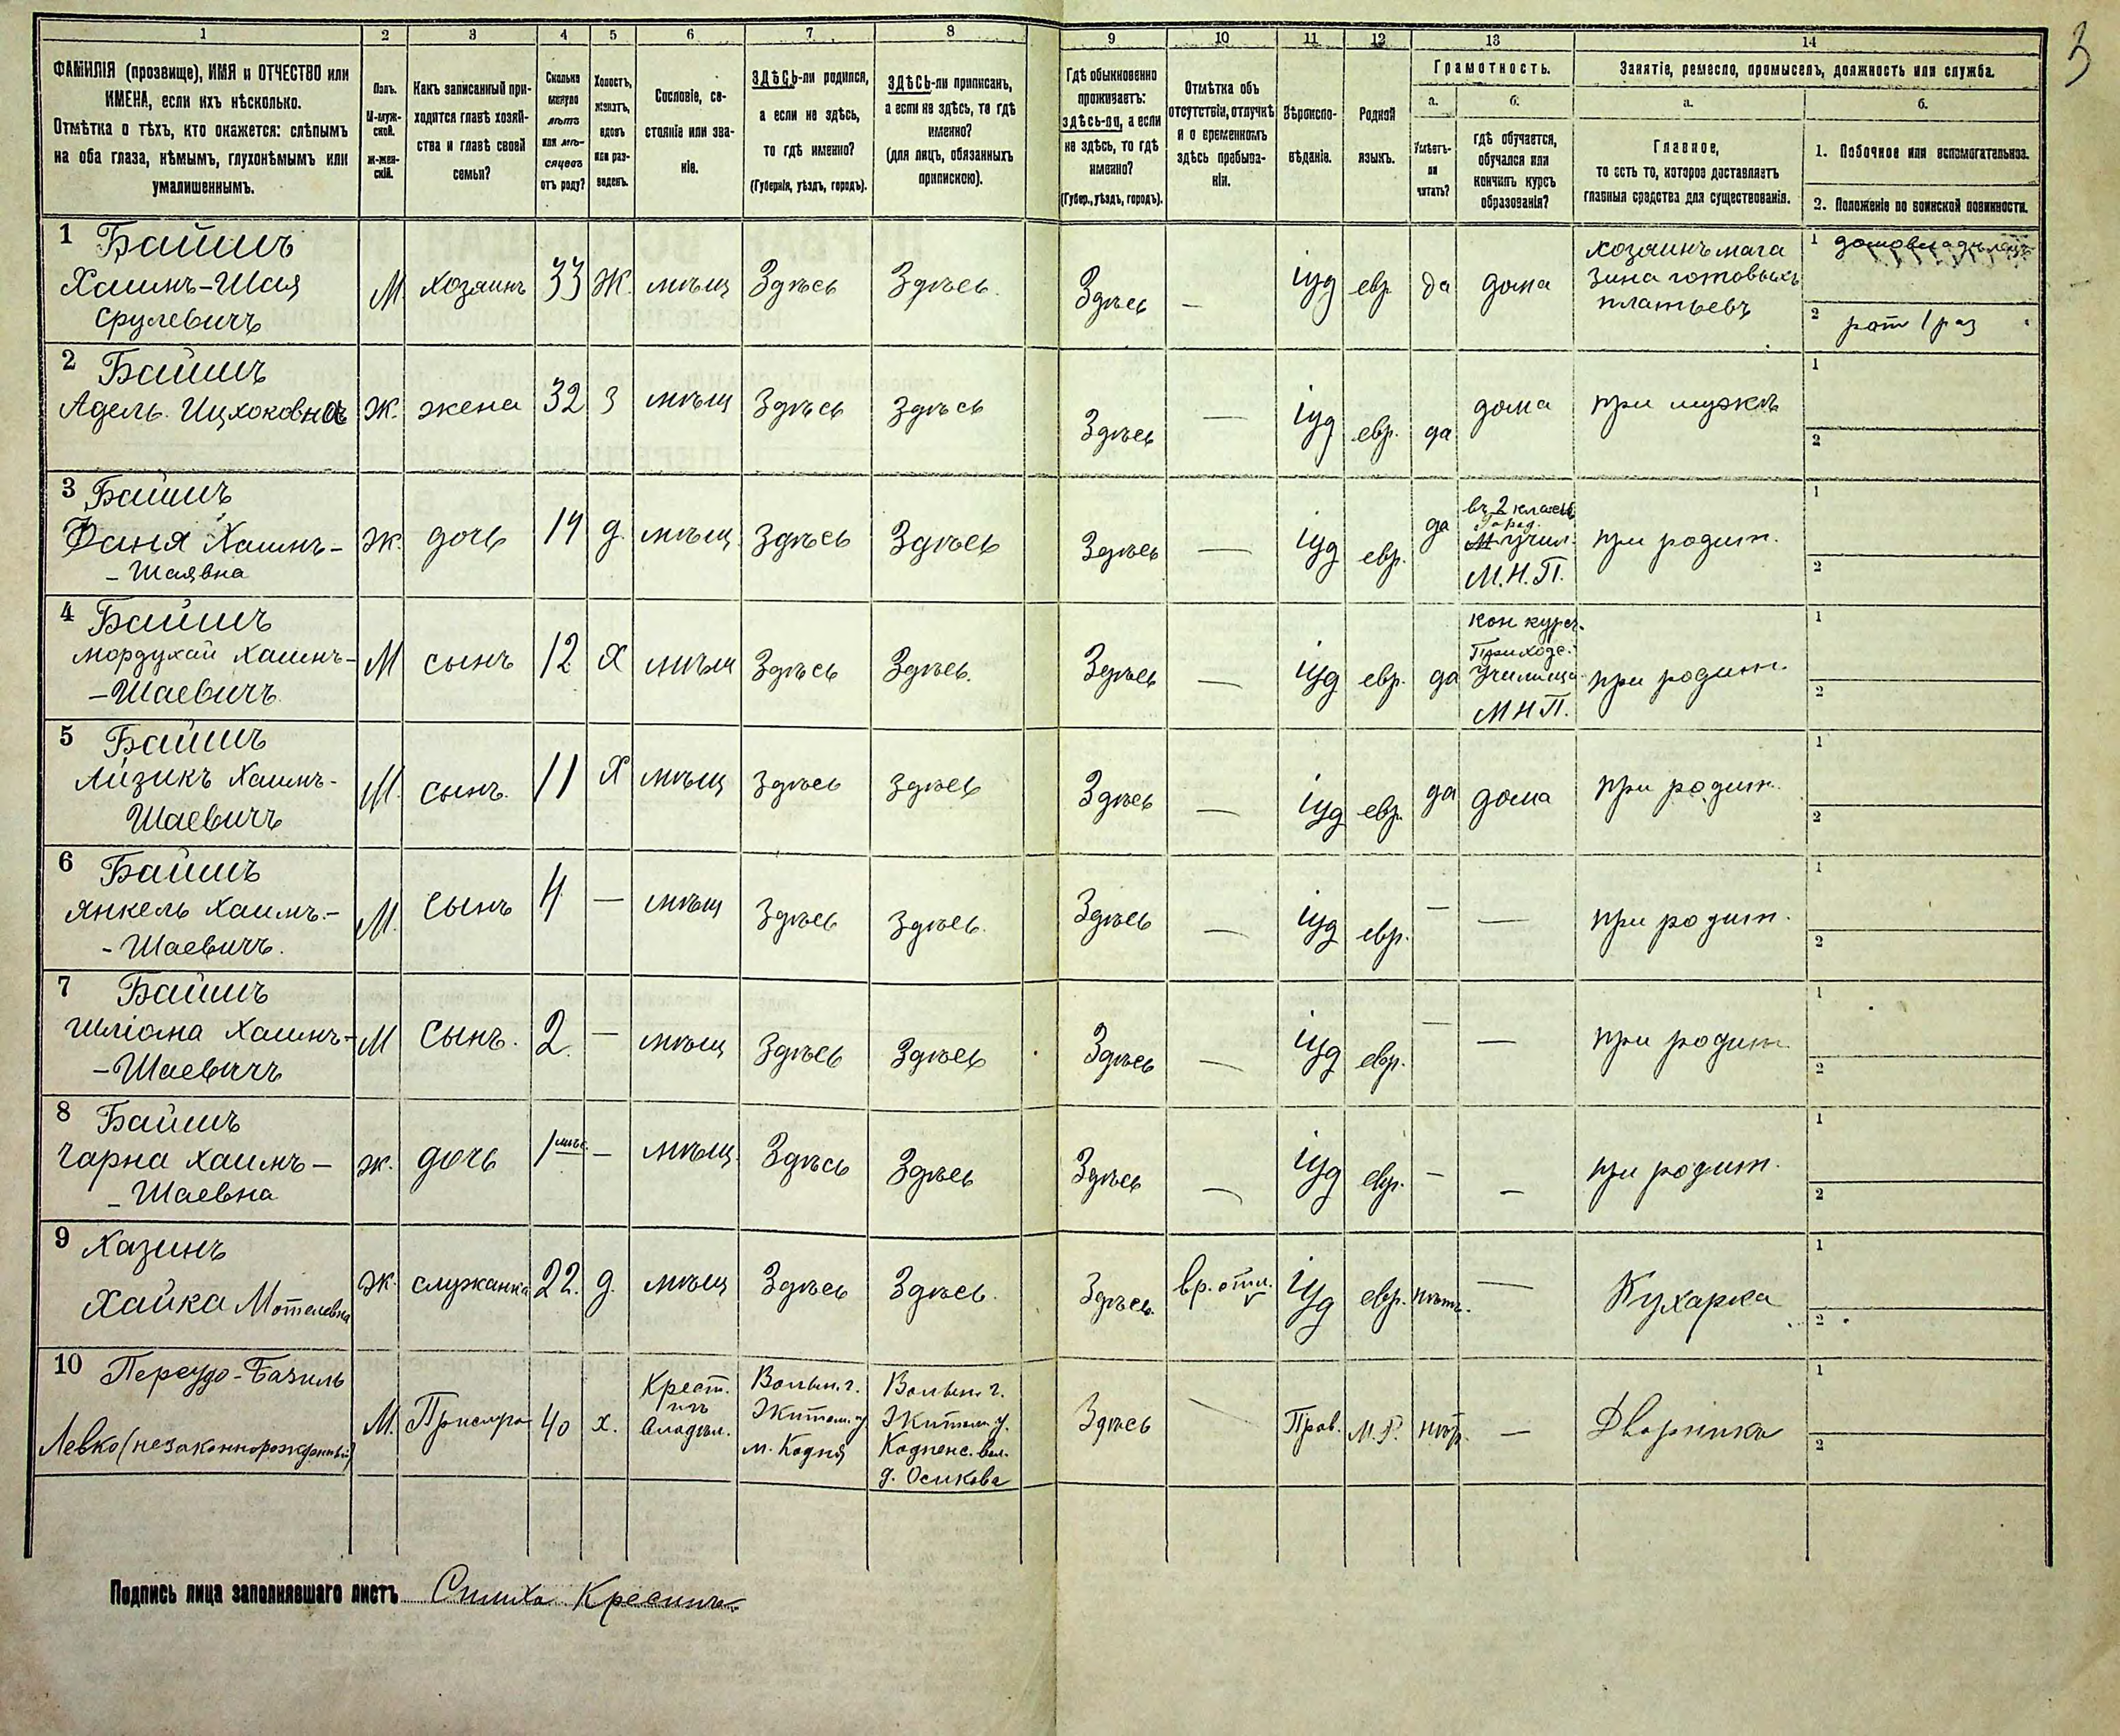 3
1 2 3 4 5 6 7 8 9 10 11 12 13 14
ФАМИЛІЯ (прозвище), ИМЯ и ОТЧЕСТВО или
ИМЕНА, если ихъ нѣсколько.
Отмѣтка о тѣхъ, кто окажется: слѣпымъ
на оба глаза, нѣмымъ, глухонѣмымъ или
умалишеннымъ.
Полъ.
М-муж-
ской.
ж-жен-
скій.
Какъ записанный при-
ходится главѣ хозяй-
ства и главѣ своей
семьи?
Сколько
минуло
лѣтъ
или мѣ-
сяцевъ
отъ роду?
Холостъ,
женатъ,
вдовъ
или раз-
веденъ.
Сословіе, со-
стояніе или зва-
ніе.
ЗДѢСЬ-ли родился,
а если не здѣсь,
то гдѣ именно?
(Губернія, уѣздъ, городъ).
ЗДѢСЬ-ли приписанъ,
а если не здѣсь, то гдѣ
именно?
(для лицъ, обязанныхъ
припискою).
Гдѣ обыкновенно
проживаетъ:
здѣсь-ли, а если
не здѣсь, то гдѣ
именно?
(Губер., уѣздъ, городъ).
Отмѣтка объ
отсутствіи, отлучкѣ
и о временномъ
здѣсь пребыва-
ніи.
Вѣроиспо-
вѣданіе.
Родной
языкъ.
Грамотность.
а.
Умѣетъ-
ли
читать?
б.
гдѣ обучается,
обучался или
кончилъ курсъ
образованія?
Занятіе, ремесло, промыселъ, должность или служба.
а.
Главное,
то есть то, которое доставляетъ
главныя средства для существованія.
б.
1. Побочное или вспомогательное.
2. Положеніе по воинской повинности.
1 Байшъ
Хаимъ-Шая
Срулевичъ
М хозяинъ 33 Ж. мѣщ Здѣсь Здѣсь. Здѣсь — іуд евр да дома
хозяинъ мага
зина готовыхъ
платьевъ
1
2 рат 1 раз
2 Байшъ
Адель Ицхоковна Ж. жена 32 З мѣщ Здѣсь Здѣсь Здѣсь — іуд евр. да дома при мужѣ
1
2
3 Байшъ
Фаня Хаимъ-
- Шаявна
Ж. дочь 14 д. мѣщ Здѣсь Здѣсь Здѣсь — іуд евр. да
въ 2 класс
Город.
учил.
М.Н.П.
при родит.
1
2
4 Байшъ
Мордухай Хаимъ-
-Шаевичъ
М сынъ 12 Х мѣщ Здѣсь Здѣсь. Здѣсь — іуд евр. да
кон курс.
Приходс.
училища
МНП.
при родит.
1
2
5 Байшъ
Айзикъ Хаимъ-
Шаевичъ
М. сынъ. 11 Х мѣщ Здѣсь Здѣсь Здѣсь — іуд евр. да дома при родит.
1
2
6 Байшъ
Янкель Хаимъ-
- Шаевичъ.
М. Сынъ 4 — мѣщ Здѣсь Здѣсь. Здѣсь — іуд евр. — — при родит.
1
2
7 Байшъ
Шліома Хаимъ-
-Шаевичъ
М Сынъ. 2. — мѣщ Здѣсь Здѣсь Здѣсь — іуд евр. — — при родит.
1
2
8 Байшъ
Чарна Хаимъ-
- Шаевна
ж. дочь 1 мѣс. — мѣщ. Здѣсь Здѣсь Здѣсь — іуд евр. — — при родит.
1
2
9 Хазинъ
Хайка Мотелевна
Ж. служанка 22. д. мѣщ Здѣсь Здѣсь. Здѣсь вр. отл. іуд евр. нѣтъ. — Кухарка
1
2
10 Пересудо-Базиль
Левко (незаконнорожденный)
М. Прислуга 40 х.
Крест.
изъ
владѣл.
Волын. г.
Житом. у.
м. Кодня
Волын. г.
Житом. у.
Кодненс. вол.
д. Осикова
Здѣсь — Прав. М.Р. — Дворникъ
1
2
Подпись лица заполнявшаго листъ Симха